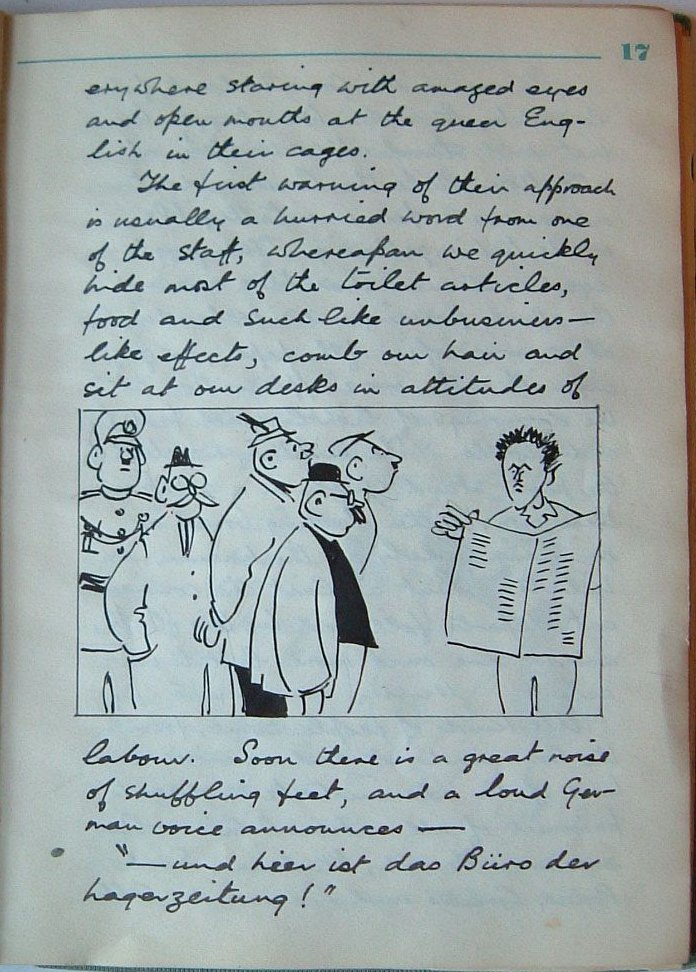 17
erywhere staring with amazed eyes
and open mouths at the queer Eng-
lish in their cages.
The first warning of their approach
is usually a hurried word from one
of the staff, whereupon we quickly
hide most of the toilet articles,
food and such-like unbusiness-
like effects, comb our hair and
sit at our desks in attitudes of
labour. Soon there is a great noise
of shuffling feet, and a loud Ger-
man voice announces —
"— und hier ist das Büro der
Lagerzeitung!"